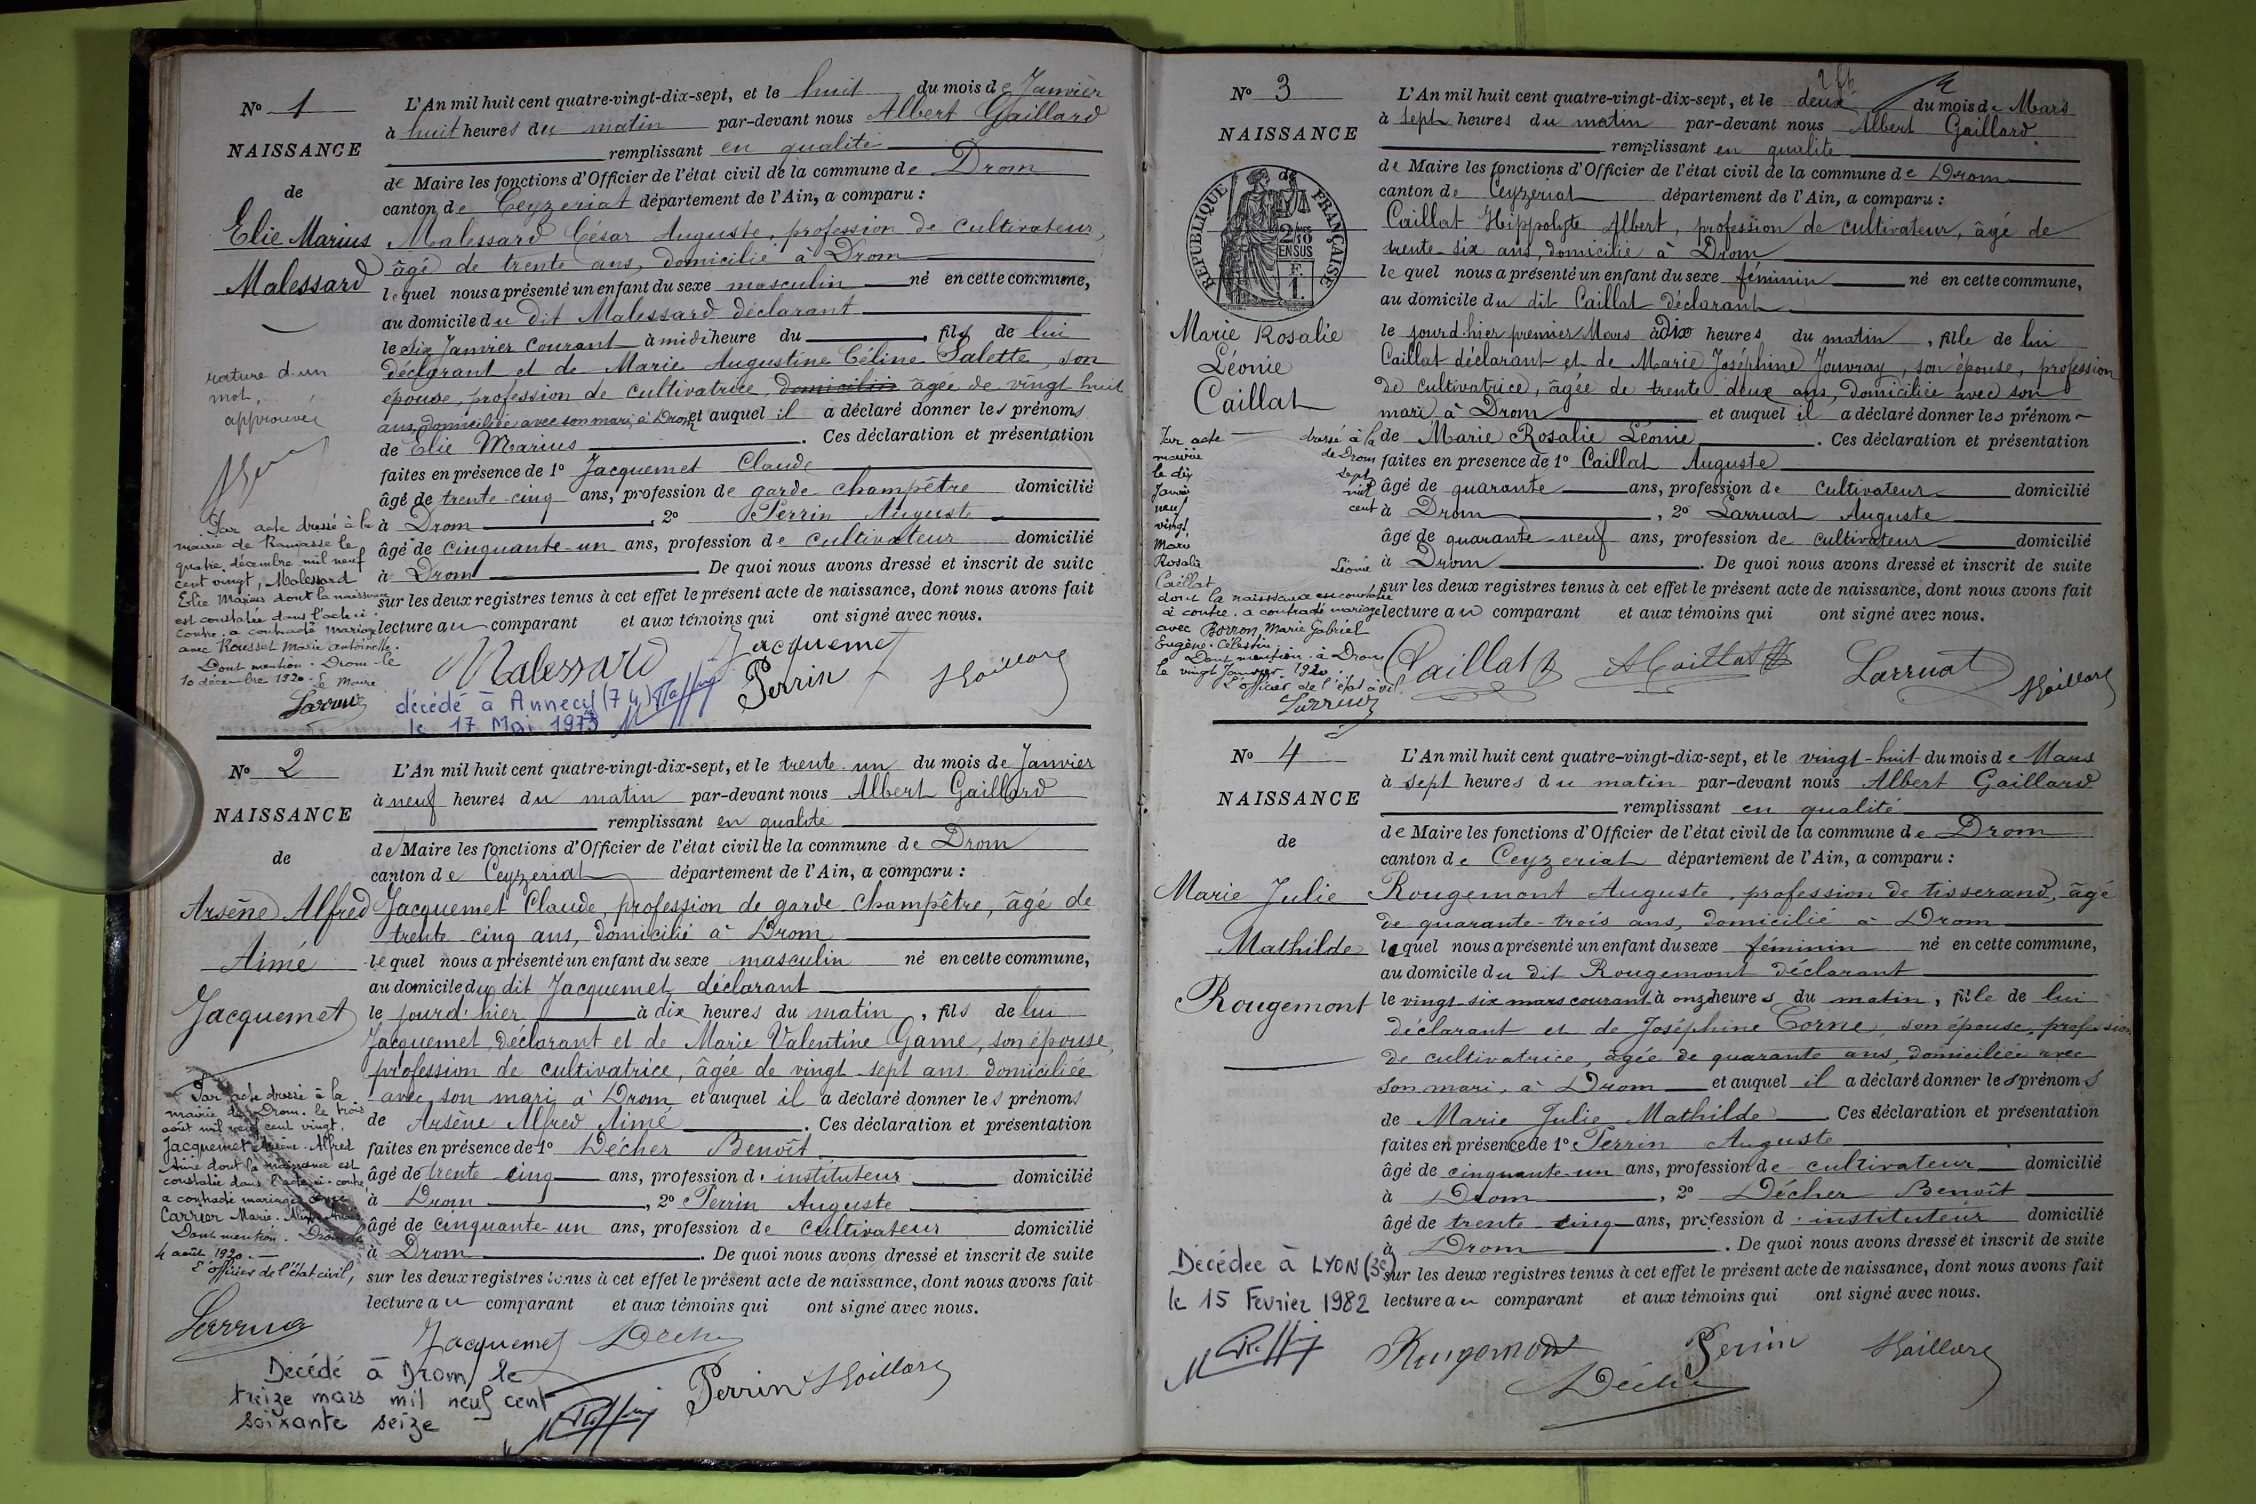 N° 1
NAISSANCE
de
Elie Marius
Malessard
rature d'un
mot,
approuvée
Par acte dressé à la
mairie de Ramasse le
quatre décembre mil neuf
cent vingt, Malessard
Elie Marius dont la naissance
est constatée dans l'acte ci-
contre, a contracté mariage
avec Rousset Marie Antoinette.
Dont mention. Drom le
10 décembre 1920. Le Maire
L'An mil huit cent quatre-vingt-dix-sept, et le huit du mois de Janvier
à huit heures du matin par-devant nous Albert Gaillard
remplissant en qualité
de Maire les fonctions d'Officier de l'état civil de la commune de Drom
canton de Ceyzeriat département de l'Ain, a comparu :
Malessard César Auguste, profession de cultivateur,
âgé de trente ans, domicilié à Drom
lequel nous a présenté un enfant du sexe masculin né en cette commune,
au domicile du dit Malessard déclarant
le six Janvier courant à midi heure du , fils de lui
déclarant et de Marie Augustine Céline Salette, son
épouse, profession de cultivatrice, domiciliée âgée de vingt huit
ans, domiciliée avec son mari à Drom et auquel il a déclaré donner les prénoms
de Elie Marius . Ces déclaration et présentation
faites en présence de 1° Jacquemet Claude
âgé de trente-cinq ans, profession de garde champêtre domicilié
à Drom , 2° Perrin Auguste
âgé de cinquante-un ans, profession de cultivateur domicilié
à Drom . De quoi nous avons dressé et inscrit de suite
sur les deux registres tenus à cet effet le présent acte de naissance, dont nous avons fait
lecture au comparant et aux témoins qui ont signé avec nous.
Malessard Jacquemet
Perrin AGaillard
décédé à Annecy (74)
le 17 Mai 1973
N° 2
NAISSANCE
de
Arsène Alfred
Aimé
Jacquemet
Par acte dressé à la
mairie de Drom, le trois
août mil neuf cent vingt,
Jacquemet Arsène Alfred
Aimé dont la naissance est
constatée dans l'acte ci-contre
a contracté mariage avec
Carrier Marie
Dont mention. Drom le
4 août 1920.
L'officier de l'état civil,
L'An mil huit cent quatre-vingt-dix-sept, et le trente un du mois de Janvier
à neuf heures du matin par-devant nous Albert Gaillard
remplissant en qualité
de Maire les fonctions d'Officier de l'état civil de la commune de Drom
canton de Ceyzeriat département de l'Ain, a comparu :
Jacquemet Claude, profession de garde champêtre, âgé de
trente cinq ans, domicilié à Drom
lequel nous a présenté un enfant du sexe masculin né en cette commune,
au domicile du dit Jacquemet déclarant
le jourd'hier à dix heures du matin , fils de lui
Jacquemet déclarant et de Marie Valentine Game, son épouse,
profession de cultivatrice, âgée de vingt sept ans domiciliée
avec son mari à Drom et auquel il a déclaré donner les prénoms
de Arsène Alfred Aimé . Ces déclaration et présentation
faites en présence de 1° Décher Benoît
âgé de trente cinq ans, profession d'instituteur domicilié
à Drom , 2° Perrin Auguste
âgé de cinquante un ans, profession de cultivateur domicilié
à Drom . De quoi nous avons dressé et inscrit de suite
sur les deux registres tenus à cet effet le présent acte de naissance, dont nous avons fait
lecture au comparant et aux témoins qui ont signé avec nous.
Jacquemet Décher
Perrin AGaillard
Décédé à Drom le
treize mars mil neuf cent
soixante seize
N° 3
NAISSANCE
RÉPUBLIQUE FRANÇAISE
de
2/10
EN SUS
F.
1.
Marie Rosalie
Léonie
Caillat
Par acte dressé à la
mairie de Drom
le dix sept
Janvier mil
neuf cent
vingt
Marie
Rosalie Léonie
Caillat
dont la naissance est constatée
ci contre, a contracté mariage
avec Borron, Marie Gabriel
Eugène Célestin
Dont mention à Drom
le vingt Janvier 1920
L'officier de l'état civil
L'An mil huit cent quatre-vingt-dix-sept, et le deux du mois de Mars
à sept heures du matin par-devant nous Albert Gaillard
remplissant en qualité
de Maire les fonctions d'Officier de l'état civil de la commune de Drom
canton de Ceyzeriat département de l'Ain, a comparu :
Caillat Hippolyte Albert, profession de cultivateur, âgé de
trente-six ans, domicilié à Drom
le quel nous a présenté un enfant du sexe féminin né en cette commune,
au domicile du dit Caillat déclarant
le jourd'hier premier Mars à dix heures du matin , fille de lui
Caillat déclarant et de Marie Joséphine Jouvray, son épouse, profession
de cultivatrice, âgée de trente deux ans, domiciliée avec son
mari à Drom et auquel il a déclaré donner les prénom
de Marie Rosalie Léonie . Ces déclaration et présentation
faites en présence de 1° Caillat Auguste
âgé de quarante ans, profession de cultivateur domicilié
à Drom , 2° Larruat Auguste
âgé de quarante-neuf ans, profession de cultivateur domicilié
à Drom . De quoi nous avons dressé et inscrit de suite
sur les deux registres tenus à cet effet le présent acte de naissance, dont nous avons fait
lecture au comparant et aux témoins qui ont signé avec nous.
Caillat A Caillat Larruat AGaillard
N° 4
NAISSANCE
de
Marie Julie
Mathilde
Rougemont
L'An mil huit cent quatre-vingt-dix-sept, et le vingt-huit du mois de Mars
à sept heures du matin par-devant nous Albert Gaillard
remplissant en qualité
de Maire les fonctions d'Officier de l'état civil de la commune de Drom
canton de Ceyzeriat département de l'Ain, a comparu :
Rougemont Auguste, profession de tisserand, âgé
de quarante-trois ans, domicilié à Drom
lequel nous a présenté un enfant du sexe féminin né en cette commune,
au domicile du dit Rougemont déclarant
le vingt-six mars courant à onze heures du matin, fille de lui
déclarant et de Joséphine Corne, son épouse, profession
de cultivatrice, âgée de quarante ans, domiciliée avec
son mari, à Drom et auquel il a déclaré donner les prénoms
de Marie Julie Mathilde . Ces déclaration et présentation
faites en présence de 1° Perrin Auguste
âgé de cinquante-un ans, profession de cultivateur domicilié
à Drom , 2° Décher Benoît
âgé de trente cinq ans, profession d'instituteur domicilié
à Drom . De quoi nous avons dressé et inscrit de suite
sur les deux registres tenus à cet effet le présent acte de naissance, dont nous avons fait
lecture au comparant et aux témoins qui ont signé avec nous.
Décédée à LYON (3e)
le 15 Fevrier 1982
Rougemont Perrin AGaillard
Décher